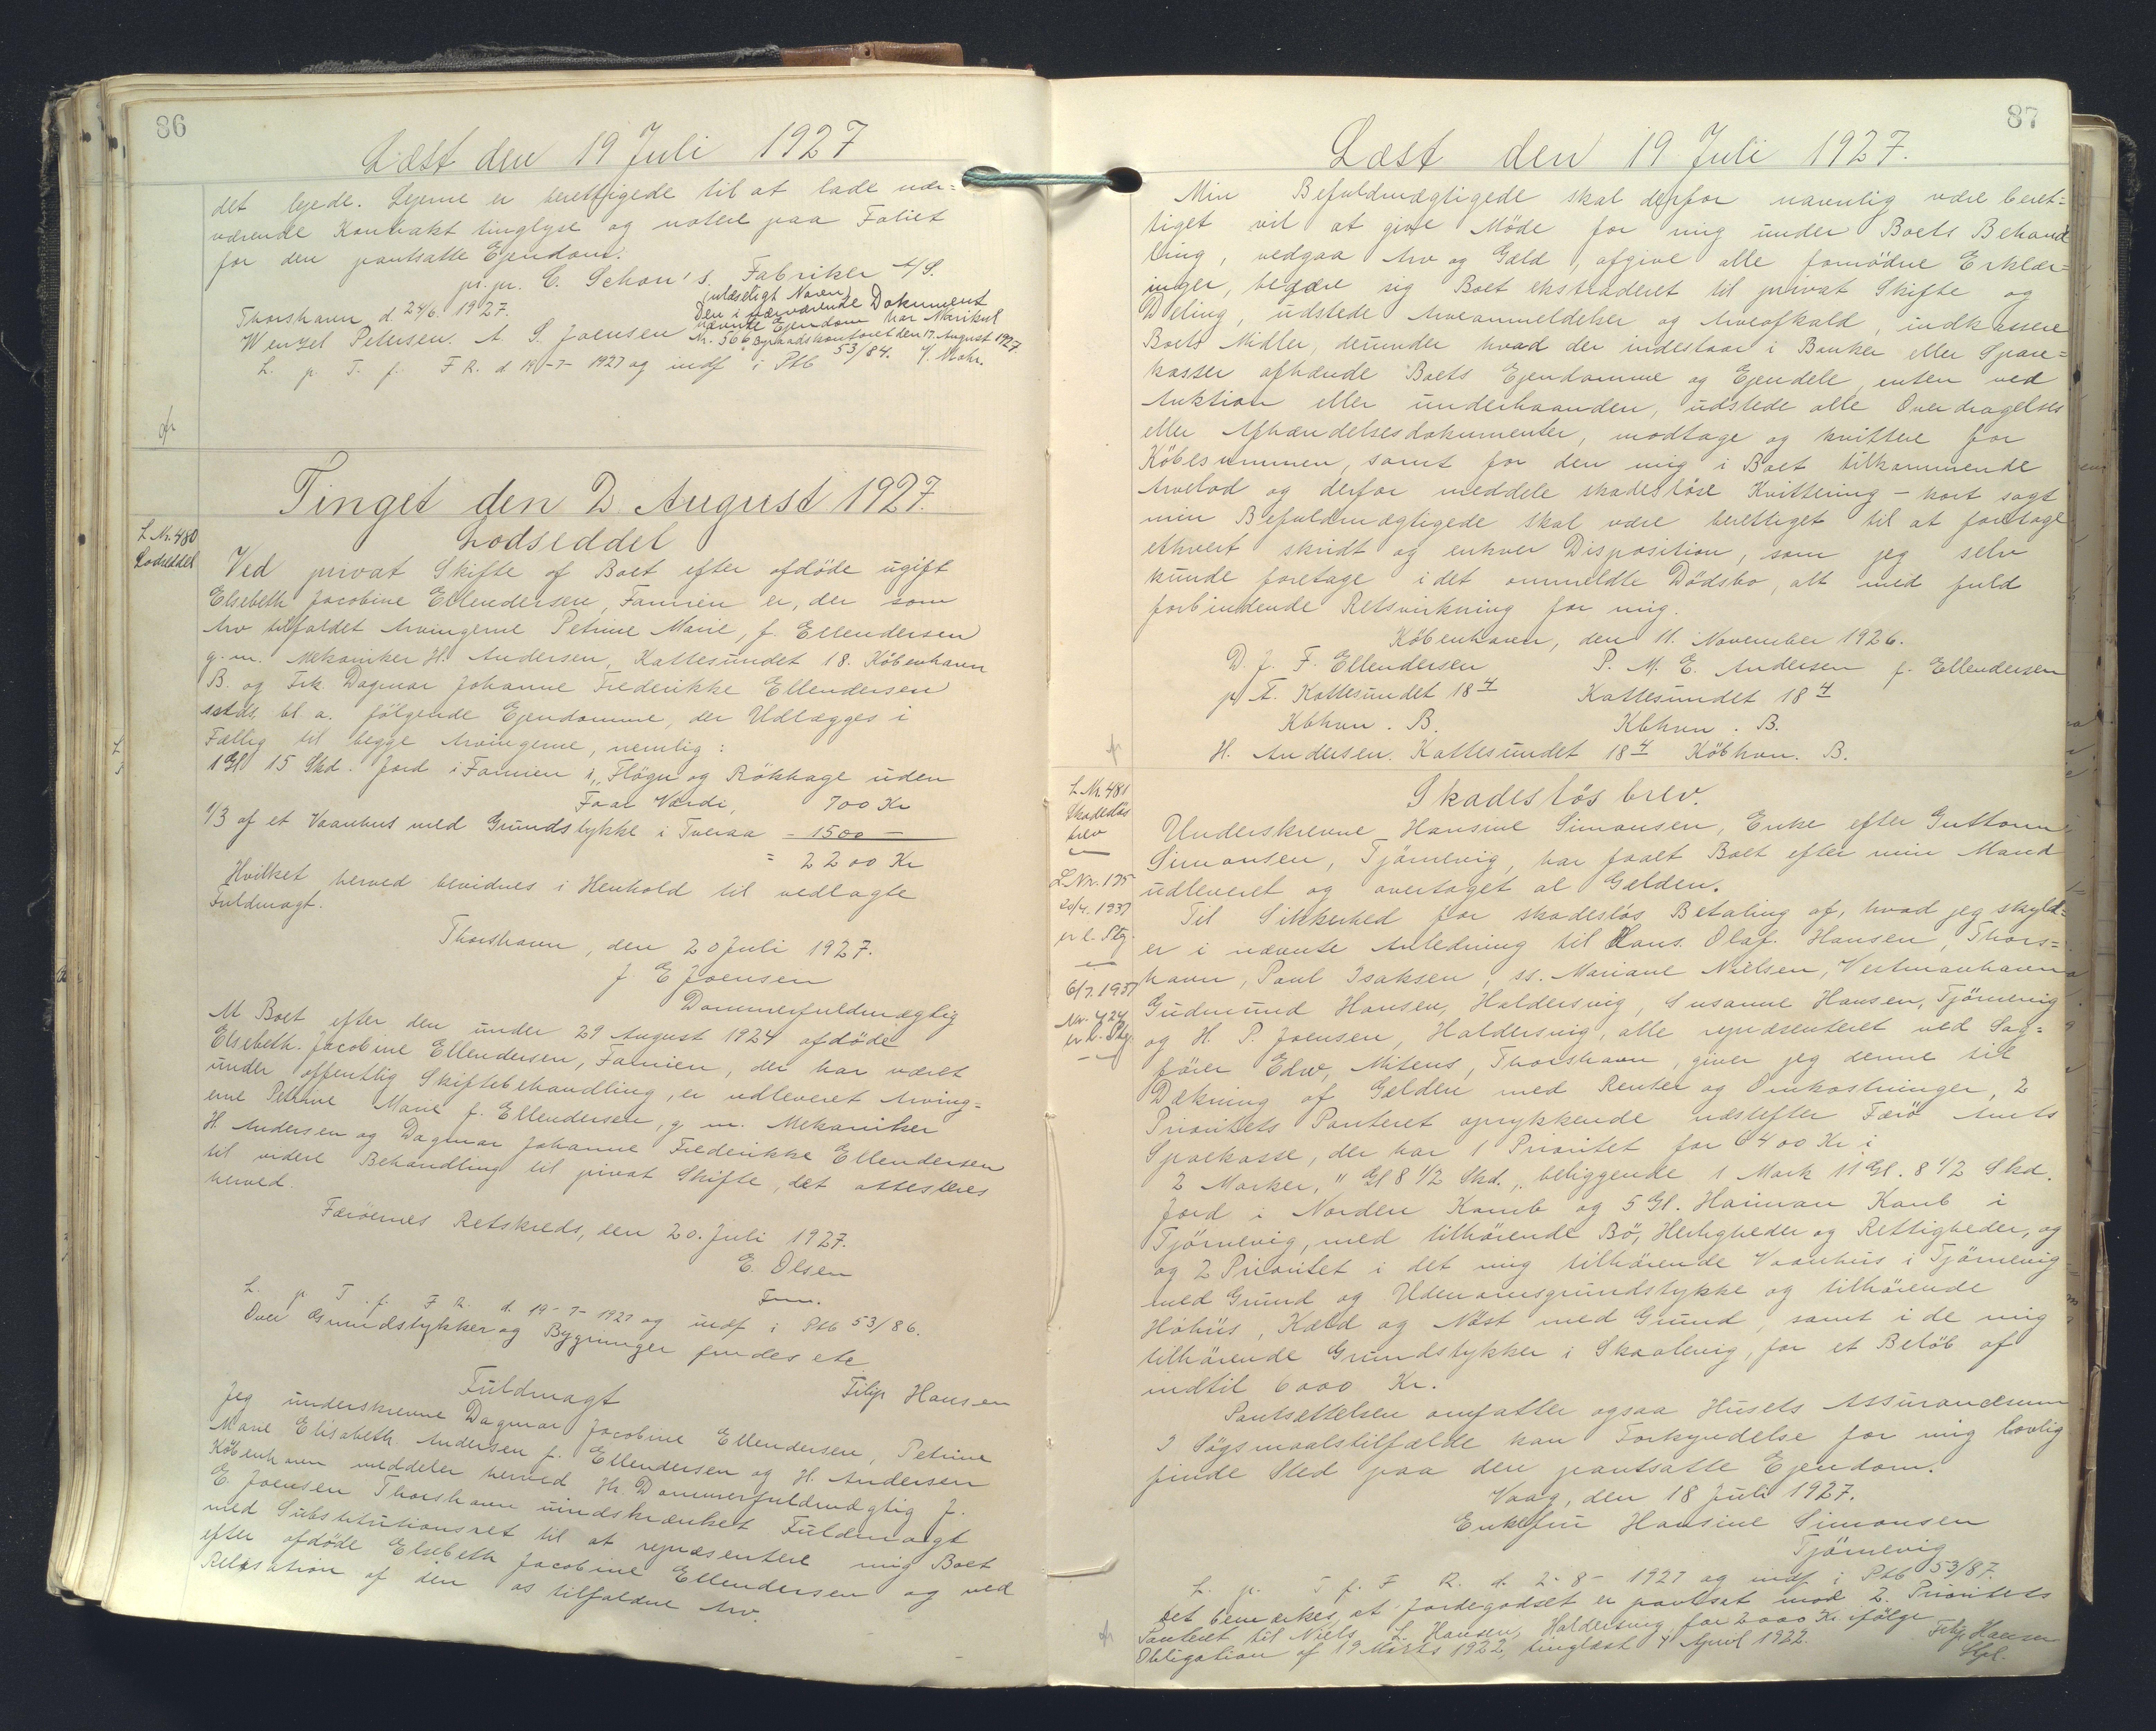 86
Læst den 19 Juli 1927
det lejede. Lejerne er berettigede til at lade nær=
værende Kontrakt tinglyse og notere paa Foliet
for den pantsatte Ejendom.
pr. pr. C. Schou's Fabriker A/S.
(ulæseligt Navn)
Thorshavn d 24/6 1927.
Den i nærværende Dokument
Wenzel Petersen. A. S. Joensen
nævnte Ejendom har Matrikul
Nr. 566 Byraadskontoret den 17. August 1927.
L. p. T. f. F R. d 19-7-1927 og indf i Ptb 53/84.
Mohr.
Tinget den 2 August 1927.
L Nr. 480
Lodseddel
Lodseddel
Ved privat Skifte af Boet efter afdöde ugift
Elsebeth Jacobine Ellendersen, Famien er, der som
Arv tilfaldet Arvingerne Petrine Marie, f. Ellendersen
g. m. Mekaniker H. Andersen, Kattesundet 18. København
B. og Frk. Dagmar Johanne Frederikke Ellendersen
sstds, bl. a. følgende Ejendomme, der Udlægges i
Fællig til begge Arvingerne, nemlig:
1 Gl 15 Skd. Jord i Famien i, Flögu og Rökhage uden
Faar Værdi, 700 Kr
1/3 af et Vaanhus med Grundstykke i Tveraa - 1500 -
= 2200 Kr
Hvilket herved bevidnes i Henhold til vedlagte
Fuldmagt.
Thorshavn, den 20 Juli 1927.
J. E Joensen
Dommerfuldmægtig
At Boet efter den under 29 August 1924 afdöde
Elsebeth Jacobine Ellendersen, Famien, der har været
under offentlig Skiftebehandling, er udleveret Arving=
erne Petrine Marie f. Ellendersen, g. m. Mekaniker
H Andersen og Dagmar Johanne Frederikke Ellendersen
til videre Behandling til privat Skifte, det attesteres
herved.
Færöernes Retskreds, den 20. Juli 1927.
E. Olsen
Fm.
L. p T. f. F R. d. 19-7-1927 og indf i Ptb 53/86.
Over Grundstykker og Bygninger findes etc
Filip Hansen
Fuldmagt
Jeg underskrevne Dagmar Jacobine Ellendersen, Petrine
Marie Elisabeth Andersen f. Ellendersen og H. Andersen
København meddeler herved Hr. Dommerfuldmægtig J.
E. Joensen Thorshavn uindskrænket Fuldmagt
med Substitutionsret til at repræsentere mig Boet
efter afdöde Elsebeth Jacobine Ellendersen og ved
Reläsation af den os tilfaldne Arv.
87
Læst den 19 Juli 1927.
Min Befuldmægtigede skal derfor navnlig være beret=
tiget vil at give Møde for mig under Boets Behand
ling, vedgaa Arv og Gæld, afgive alle fornödne Erklær=
inger, begære sig Boet ekstraderet til privat Skifte og
Deling, udstede Arveanmeldelser og Arveafkald, indkassere
Boets Midler, derunder hvad der indestaar i Banker eller Spare=
kasser afhænde Boets Ejendomme og Ejendele, enten ved
Auktion eller underhaanden, udstede alle Overdragelses
eller Afhændelsesdokumenter, modtage og kvittere for
Købesummen, samt for den mig i Boet tilkommende
Arvelod og derfor meddele skadesløse Kvittering - kort sagt
min Befuldmægtigede skal være berettiget til at foretage
ethvert skridt og enhver Disposition, som jeg selv
kunde foretage i det anmeldte Dödsbo, alt med fuld
forbindende Retsvirkning for mig.
København, den 11. November 1926.
D. J. F. Ellendersen P. M. E. Andersen f. Ellendersen
p. T. Kattesundet 18 4 Kattesundet 18 4
Kbhvn. B. Kbhvn. B.
H. Andersen. Kattesundet 18 4 Købhvn. B.
L Nr. 481
Skadeslös
brev
Skadeslös brev.
Underskrevne Hansine Simonsen, Enke efter Guttorm
Simonsen, Tjörnevig, har faaet Boet efter min Mand
udleveret og overtaget al Gælden.
L Nr. 175
20/4. 1937
er l. Stg.
Til Sikkerhed for skadeslös Betaling af, hvad jeg skyld=
er i nævnte Anledning til Hans. Olaf. Hansen, Thors=
havn, Paul Isaksen, ss. Mariane Nielsen, Vestmanhavn
6/7. 1937
Nr. 424
er l. Stg.
Gudmund Hansen, Haldersvig, Susanne Hansen, Tjörnevig
og H. P. Joensen, Haldersvig, alle repræsenteret ved Sag=
fører Edw. Mitens, Thorshavn, giver jeg denne til
Dækning af Gælden med Renter og Omkostninger, 2
Prioritets Panteret oprykkende næstefter Færö Amts
Sparekasse, der har 1 Prioritet for 6400 Kr i
2 Marker, " Gl 8 1/2 Skd., beliggende 1 Mark 11 Gl. 8 1/2 Skd.
Jord i Norden Kamb og 5 Gl. Haiman Kamb i
Tjörnevig, med tilhörende Bö, Herligheder og Rettigheder, og
og 2 Prioritet i det mig tilhörende Vaanhus i Tjörnevig
med Grund og Udenomsgrundstykke og tilhörende
Höhüs, Kæld og Nöst med Grund, samt i de mig
tilhörende Grundstykker i Skaalevig, for et Belöb af
indtil 6000 Kr.
Pantsættelsen omfatter ogsaa Husets Assurancesum
I Sögsmaalstilfælde kan Forkyndelse for mig lovlig
finde Sted paa den pantsatte Ejendom.
Vaag, den 18 Juli 1927.
Enkefru Hansine Simonsen
Tjörnevig
L. p. T f. F R. d. 2-8-1927 og indf i Ptb 53/87.
Det bemærkes, at Jordegodset er pantsat mod 2. Prioritets
Panteret til Niels L. Hansen, Haldersvig for 2000 Kr ifölge
Obligation af 19 Marts 1922, tinglæst 4 April 1922.
Filip Hansen